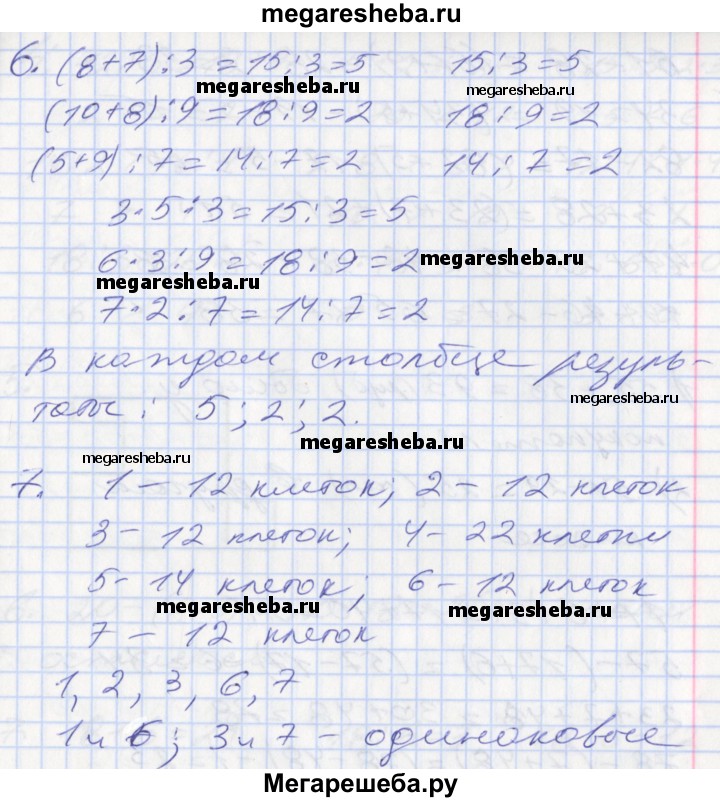 megaresheba.ru
6. (8+7):3 = 15:3=5 15:3=5
megaresheba.ru megaresheba.ru
(10+8):9=18:9=2 18:9=2
(5+9):7=14:7=2 14:7=2
3·5:3=15:3=5
6·3:9=18:9=2 megaresheba.ru
megaresheba.ru
7·2:7=14:7=2
В каждом столбце резуль-
megaresheba.ru
таты: 5; 2; 2.
megaresheba.ru
megaresheba.ru
7. 1 – 12 клеток; 2 – 12 клеток
3 – 12 клеток; 4 – 22 клетки
5 – 14 клеток; 6 – 12 клеток
megaresheba.ru megaresheba.ru
7 – 12 клеток
1, 2, 3, 6, 7
1 и 6; 3 и 7 – одинаковые
Мегарешеба.ру